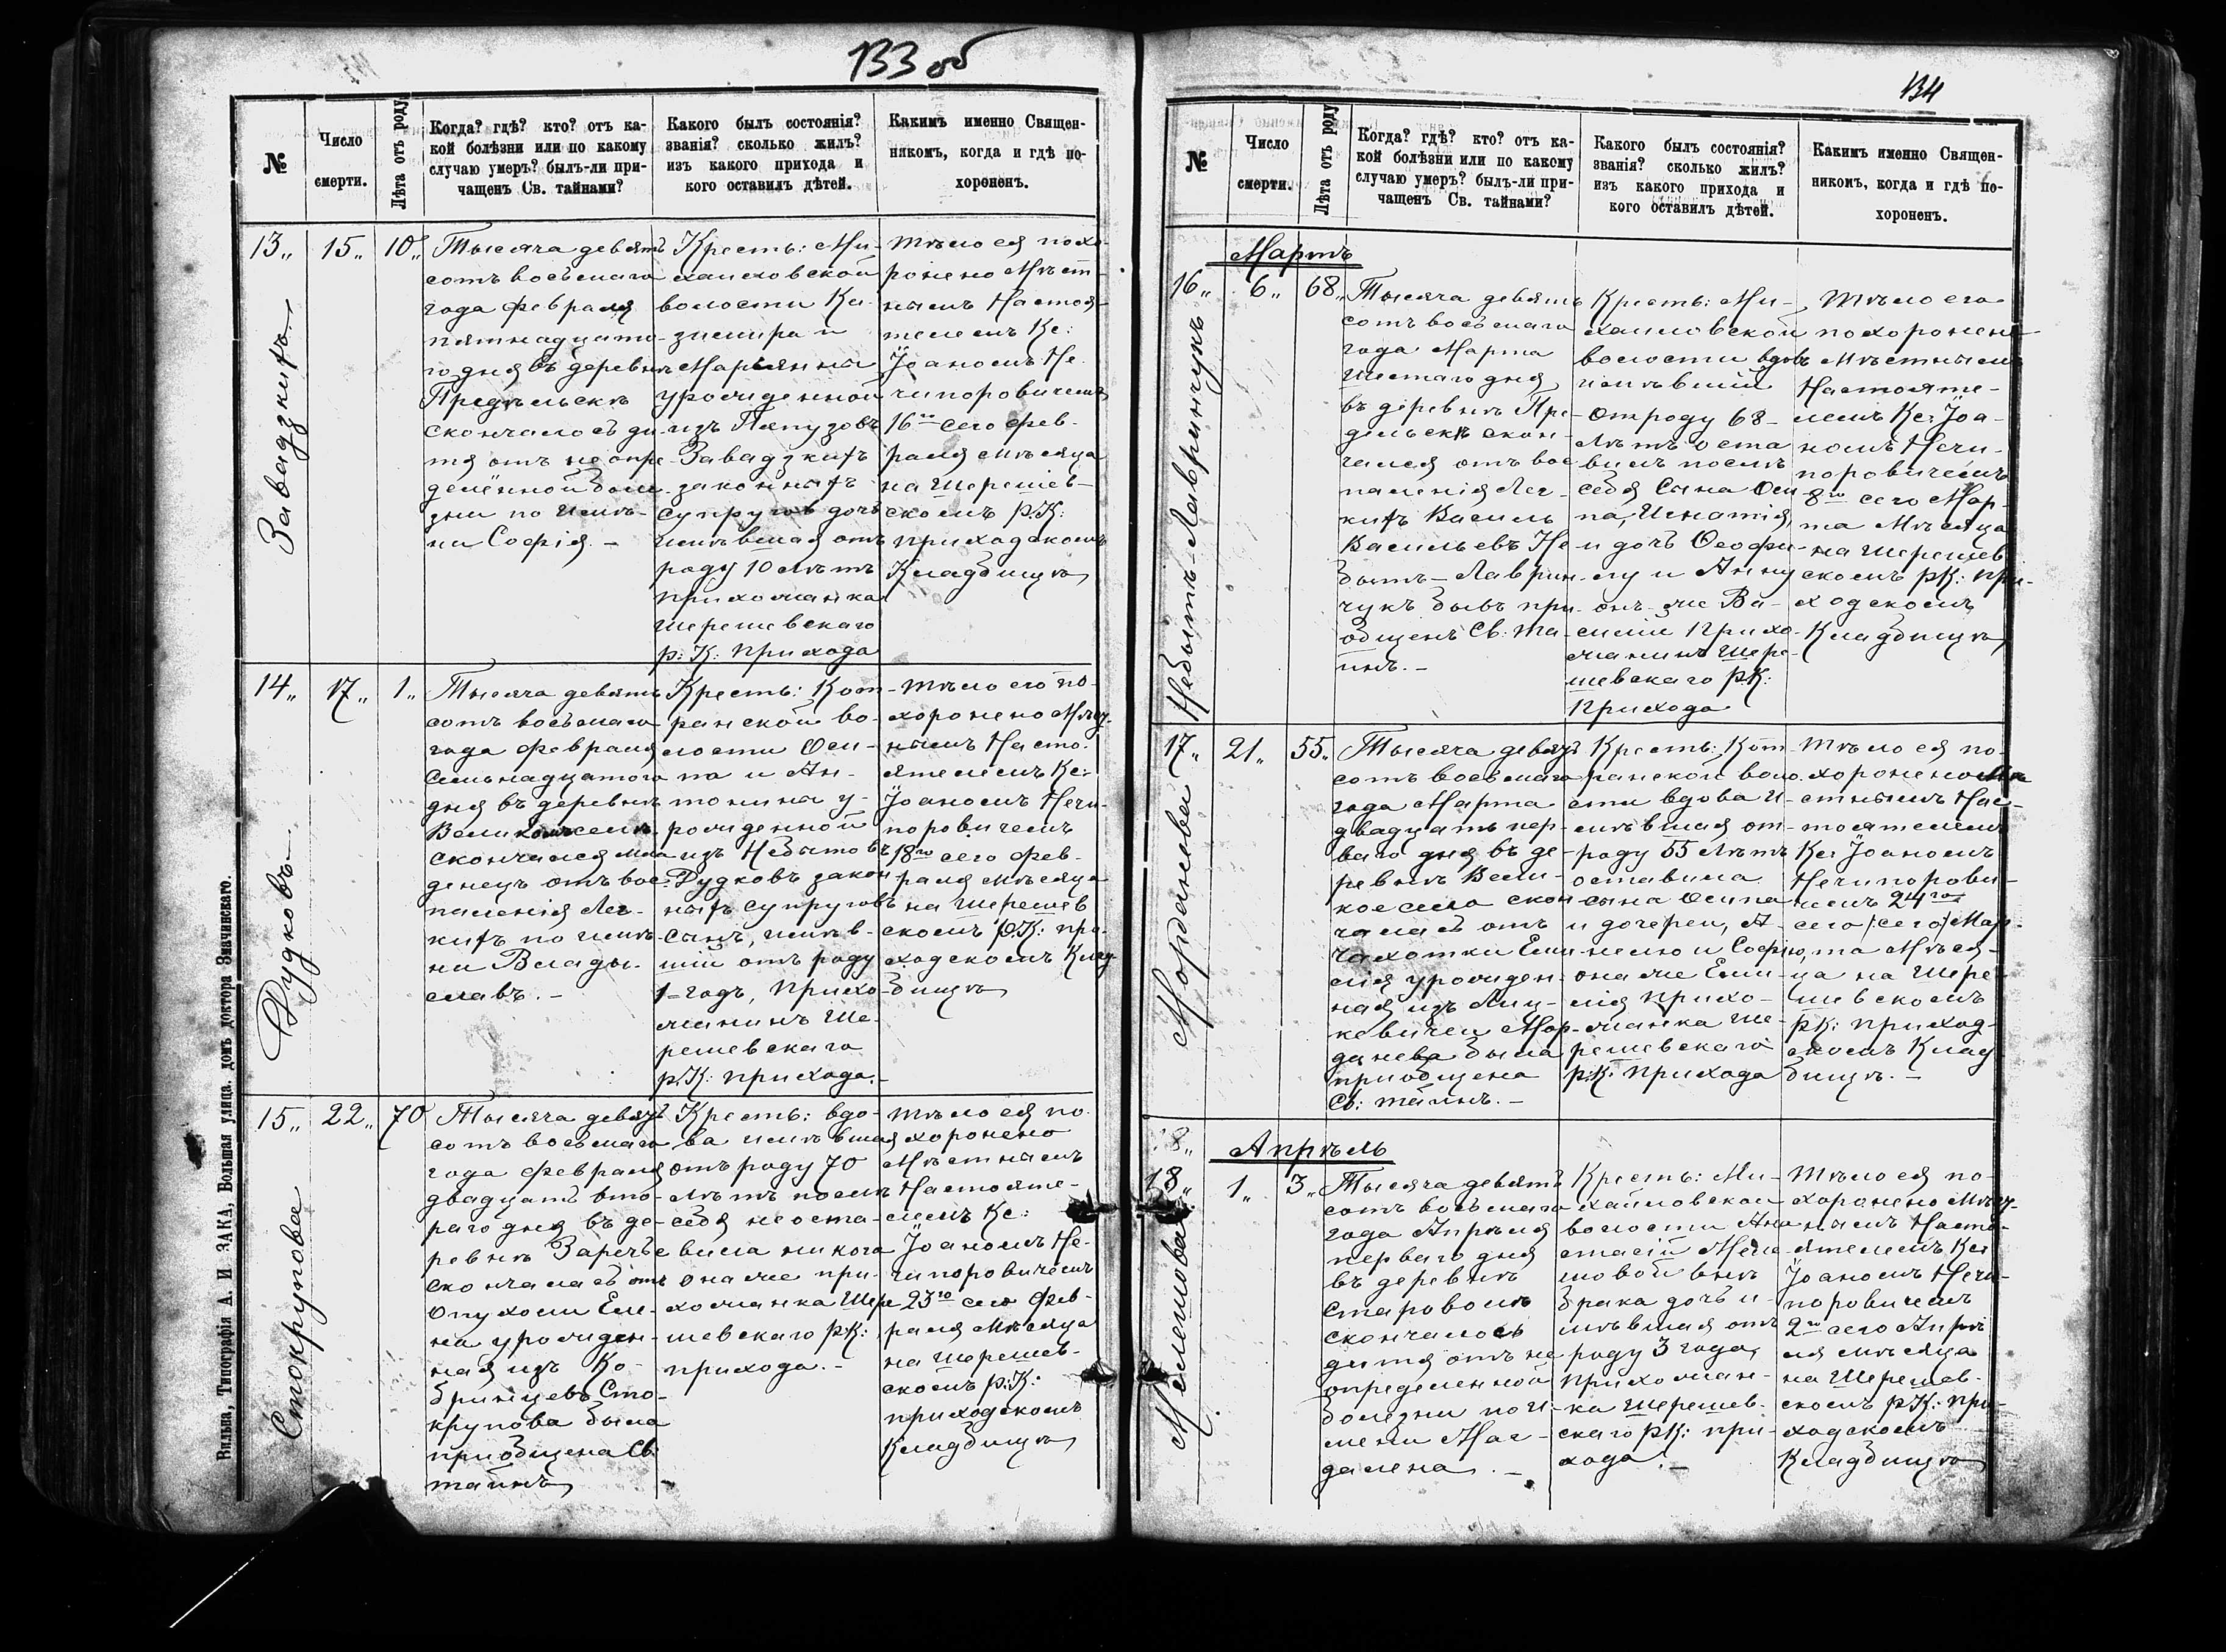 133 об
№
Число
смерти.
Лѣта отъ роду
Когда? гдѣ? кто? отъ ка-
кой болѣзни или по какому
случаю умеръ? былъ-ли при-
чащенъ Св. тайнами?
Какого былъ состоянія?
званія? сколько жилъ?
изъ какого прихода и
кого оставилъ дѣтей.
Какимъ именно Священ-
никомъ, когда и гдѣ по-
хороненъ.
13„
15„
10„
Завадзкихъ
Тысяча девять
сотъ восьмаго
года февраля
пятнадцато-
го дня въ деревнѣ
Предѣльскѣ
скончалось ди-
тя отъ не опре-
делённой болѣ-
зни по имѣ-
ни Софія. –
Крестъ: Ми-
хаиловской
волости Ка-
зимира и
Марьянны
урожденной
изъ Пяпузовъ
Завадзкихъ
законныхъ
супруговъ дочь
имѣвшая отъ
роду 10 лѣтъ
прихожанка
Шерешевскаго
р: К: прихода
Тѣло ея похо-
ронено Мѣст-
нымъ Настоя-
телемъ Кс:
Іоаномъ Не-
чипоровичемъ
16го сего фев-
раля мѣсяца
на Шерешев-
скомъ р:К:
приходскомъ
Кладбищѣ
14„
17„
1„
Рудковъ
Тысяча девять
сотъ восьмаго
года февраля
семьнадцатого
дня въ деревнѣ
скончался мла-
денецъ отъ вос-
паленія Лег-
кихъ по имѣ-
ни Влады-
славъ. –
Крестъ: Кот-
ранской во-
лости Оси-
па и Ан-
тонины у-
рожденной
изъ Небытовъ
Рудковъ закон-
ныхъ супруговъ
сынъ, имѣв-
шій отъ роду
1–годъ, прихо-
жанинъ Ше-
решевскаго
р:К: прихода.
Тѣло его по-
хоронено Мѣст-
нымъ Насто-
ятелемъ Кс:
Іоаномъ Нечи-
поровичемъ
18го сего фев-
раля мѣсяца
на Шерешев
скомъ р:К: при-
ходскомъ Клад-
бищѣ
15„
22„
70
Стокрупова
Тысяча девять
сотъ восьмаго
года февраля
двадцать вто-
раго дня въ де-
ревнѣ Заречье
скончалась отъ
опухоли Еле-
на урожден-
ная изъ Ко-
бринцевъ Сто-
крупова была
приобщена Св:
тайнъ
Крестъ: вдо-
ва имѣвшая
отъ роду 70
лѣтъ послѣ
себя не оста-
вила никого
она же при-
хожанка Шере-
шевскаго р:К:
прихода. –
Тѣло ея по-
хоронено
Мѣстнымъ
Настояте-
лемъ Кс:
Іоаномъ Не-
чипоровичемъ
23го сего фев-
раля мѣсяца
на Шерешев-
скомъ р:К:
приходскомъ
Кладбищѣ
Вильна, Типографія А. И. ЗАКА, Большая улица, домъ доктора Змачинскаго.
134
№
Число
смерти.
Лѣта отъ роду
Когда? гдѣ? кто? отъ ка-
кой болѣзни или по какому
случаю умеръ? былъ-ли при-
чащенъ Св. тайнами?
Какого былъ состоянія?
званія? сколько жилъ?
изъ какого прихода и
кого оставилъ дѣтей.
Какимъ именно Священ-
никомъ, когда и гдѣ по-
хороненъ.
Мартъ
16„
6„
68„
Небытъ–Лавринчукъ
Тысяча девять
сотъ восьмаго
года Марта
шестаго дня
въ деревнѣ Пре-
дельскѣ скон-
чался отъ вос
паленія Лег-
кихъ Василь
Васильевъ Не
бытъ–Лаврин-
чукъ бывъ при-
общенъ Св: Та-
инъ. –
Крестъ: Ми-
хаиловской
волости вдовъ
имѣвшій
отроду 68–
лѣтъ оста
вилъ послѣ
себя Сына Оси
па, Игнатія,
и дочь Феофи-
лу и Анну
онъ же Ва-
силій Прихо-
жанинъ Шере-
шевскаго р:К:
Прихода
Тѣло его
похоронено
Мѣстнымъ
Настояте-
лемъ Кс: Іоа-
номъ Нечи-
поровичемъ
8го сего Мар-
та Мѣсяца
на Шерешев
скомъ р:К: при-
ходскомъ
Кладбищѣ
17„
21„
55„
Морданева
Тысяча девять
сотъ восьмаго
года Марта
двадцать пер-
ваго дня въ де-
ревнѣ Вели-
коесело скон
чалась отъ
чахотки Еми
лія урожден-
ная изъ Лиц-
кевичей Мор-
данева была
приобщена
Св: тайнъ. –
Крестъ: Кот-
ранской воло-
сти вдова и-
мѣвшая от-
роду 55 лѣтъ
оставила
сына Осипа
и дочерей, А-
нелю и Софію,
она же Еми-
лія прихо-
жанка Ше-
решевскаго
р:К: прихода
Тѣло ея по-
хоронено Мѣ
стнымъ Нас-
тоятелемъ
Кс: Іоаномъ
Нечипорови-
чемъ 24го
сего /:сего:/ Мар-
та Мѣся-
ца на Шере-
шевскомъ
р:К: приход-
скомъ Клад
бищѣ. –
18„
Апрѣль
18„
1„
3„
Мелешова
Тысяча девять
сотъ восьмаго
года Апрѣля
перваго дня
въ деревнѣ
Староволѣ
скончалось
дитя отъ не
определенной
болезни по и-
мени Маг-
далена. –
Крестъ: Ми-
хаиловской
волости Ана
стасіи Меле
шовой внѣ
брака дочь и-
мѣвшая отъ
роду 3 года,
прихожан-
ка Шерешев-
скаго р:К: при-
хода. –
Тѣло ея по-
хоронено Мѣст-
нымъ Насто-
ятелемъ Кс:
Іоаномъ Нечи-
поровичемъ
2го сего Апрѣ
ля мѣсяца
на Шерешев-
скомъ р:К: при-
ходскомъ
Кладбищѣ